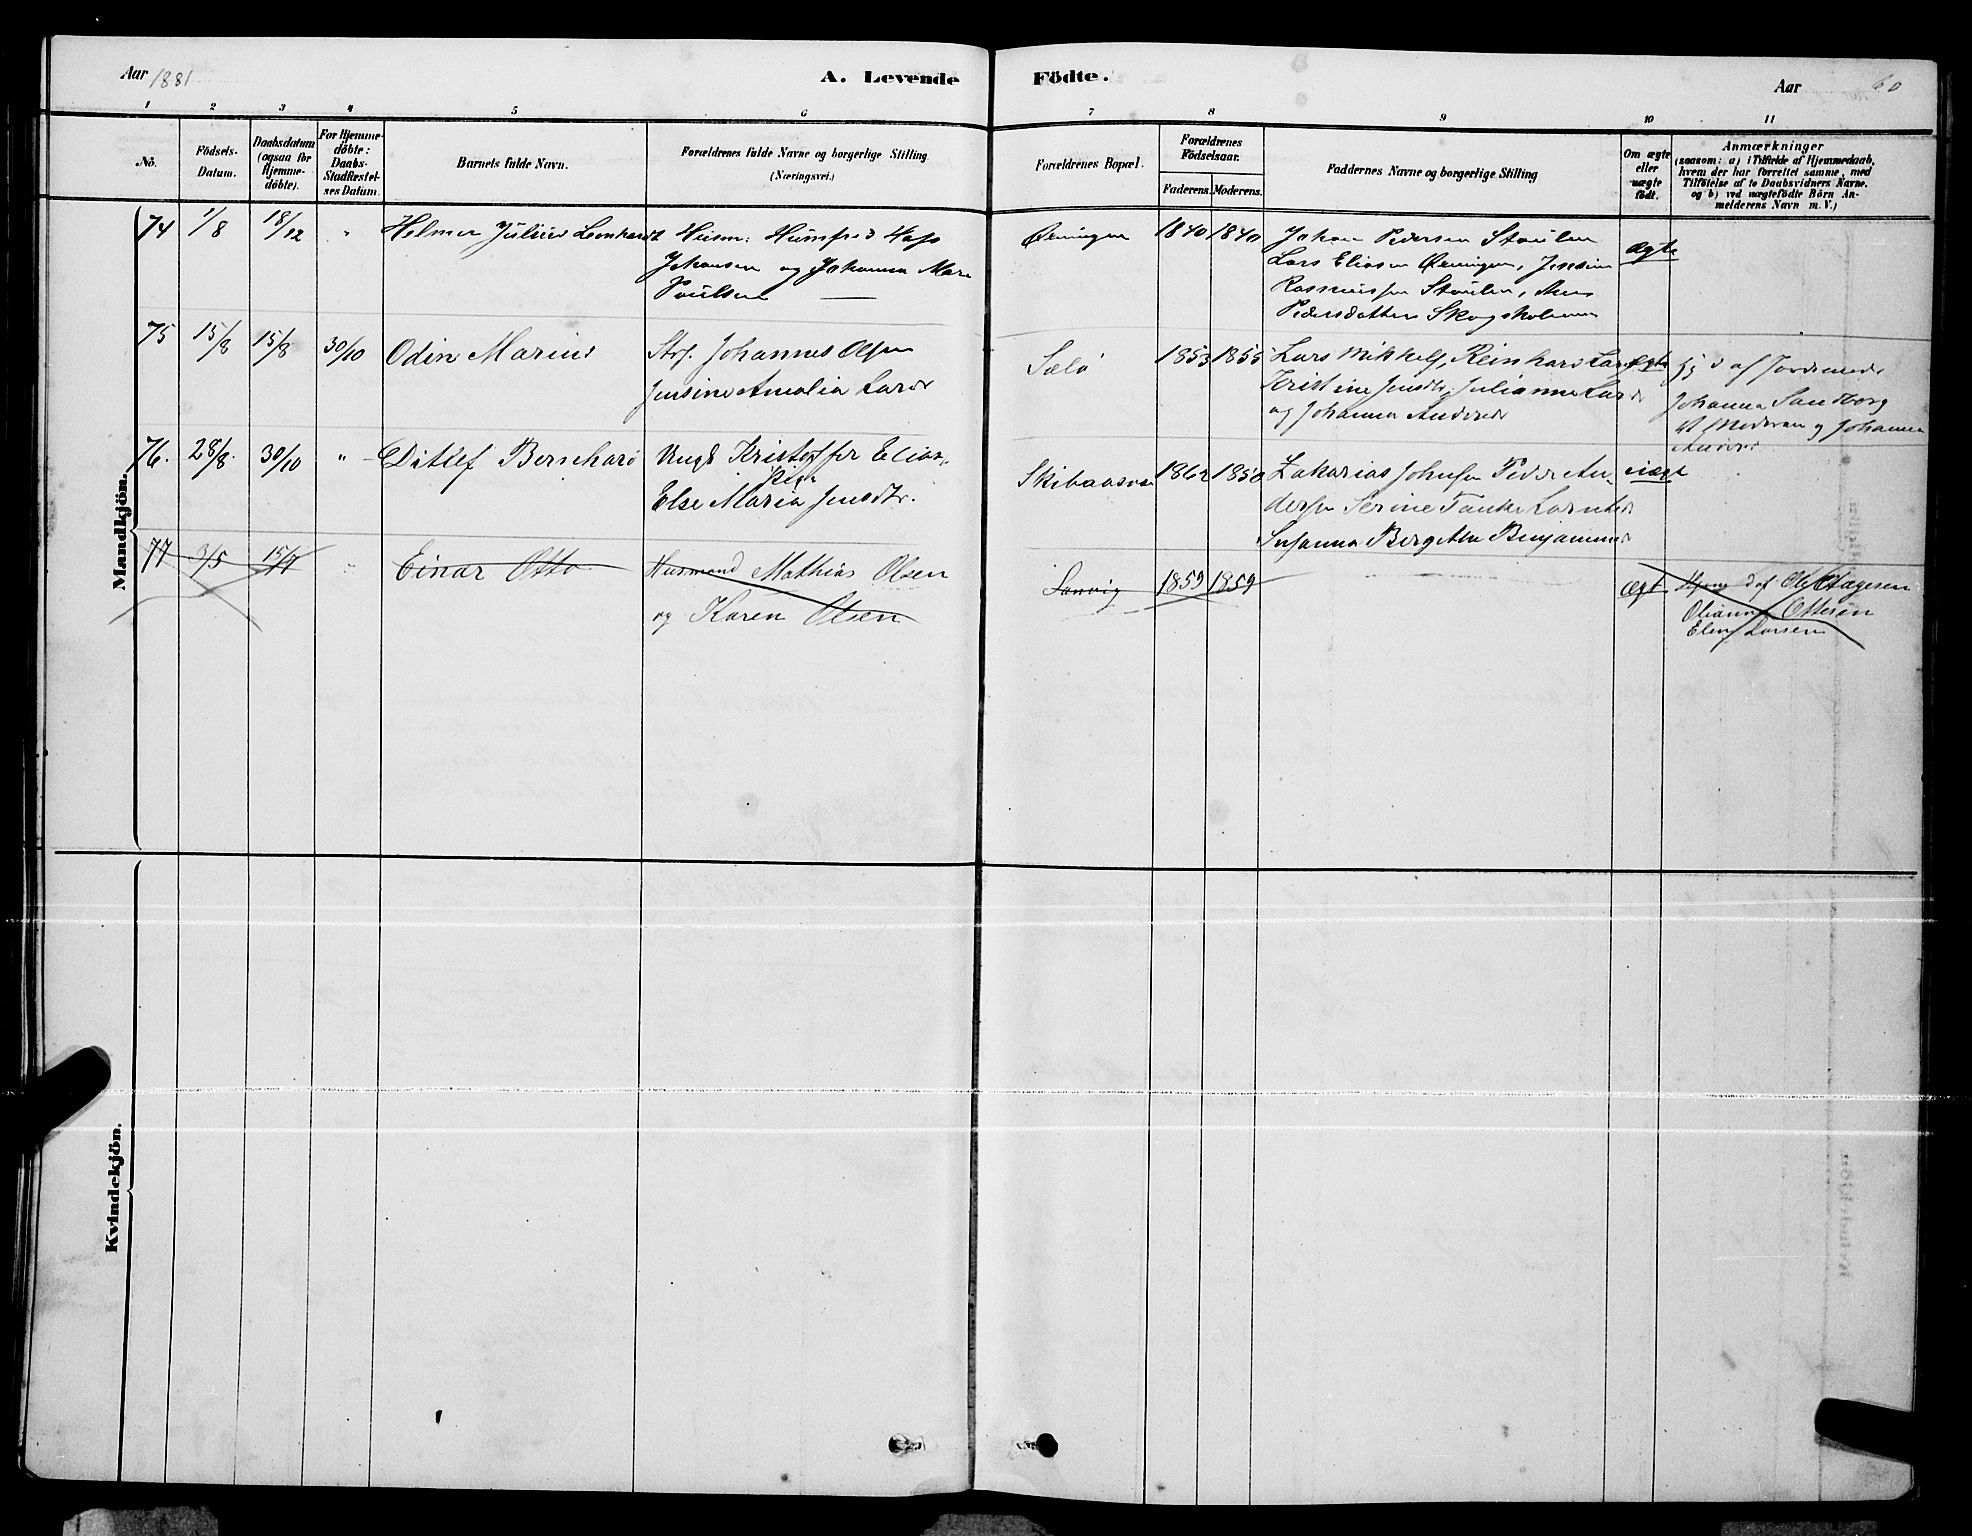 Aar 1881
A. Levende
Födte.
Aar
60
1 2 3 4 5 6 7 8 9 10 11
No.
Födsels-
Datum.
Daabsdatum
(ogsaa for
Hjemme-
döbte).
For Hjemme-
döbte:
Daabs-
Stadfæstel-
ses Datum.
Barnets fulde Navn.
Forældrenes fulde Navne og borgerlige Stilling
(Næringsvei.)
Forældrenes Bopæl.
Forældrenes
Födselsaar.
Faderens. Moderens.
Faddernes Navne og borgerlige Stilling
Om ægte
eller
uægte
født.
Anmærkninger
(saasom: a) i Tilfælde af Hjemmedaab,
hvem der har forrettet samme, med
Tilföielse af to Daabsvidners Navne.
og b) ved uægtefödte Börn An-
melderens Navn m. V.)
Mandkjön.
74 1/8 18/12 " Helmer Julius Leonhardt
Husm: Humfred Hass
Johansen og Johanna Mare
Poulsen
Øeningen 1840 1840
Johan Pedersen Staulen
Lars Eliasen Øeningen, Jensine
Rasmussen Staulen, Anes
Pedersdatter Skogsholmen
ægte
75 15/8 15/8 30/10 Odin Marius
Strf. Johannes Olsen
Jensine Amalia Larsd
Sælø 1853 1855
Lars Mikkels, Reinhard Lars
Kristine Jensdtr, Julianne Larsd
og Johanna Andersd
ægte
Hj d af Jordemodr
Johanna Sandborg
Moderen og Johanna
Andersd
76. 28/8. 30/10 " Ditlef Bernhard
Ungk Kristoffer Elias
Pige
Else Maria Jensdtr.
1862 1850
Zakarias Johnsen Peder An-
dersen Serine Tanke
Susanna Bergitte Benjamins
uægt
77 3/5 15/7 " Einar Otto
Husmand Mathias Olsen
og Karen Olsen
Sanvig 1859 1859
Ægt
Hjem d af Ole Aagesen
Oliana Otterøn
Elen Larsen
Kvindekjön.